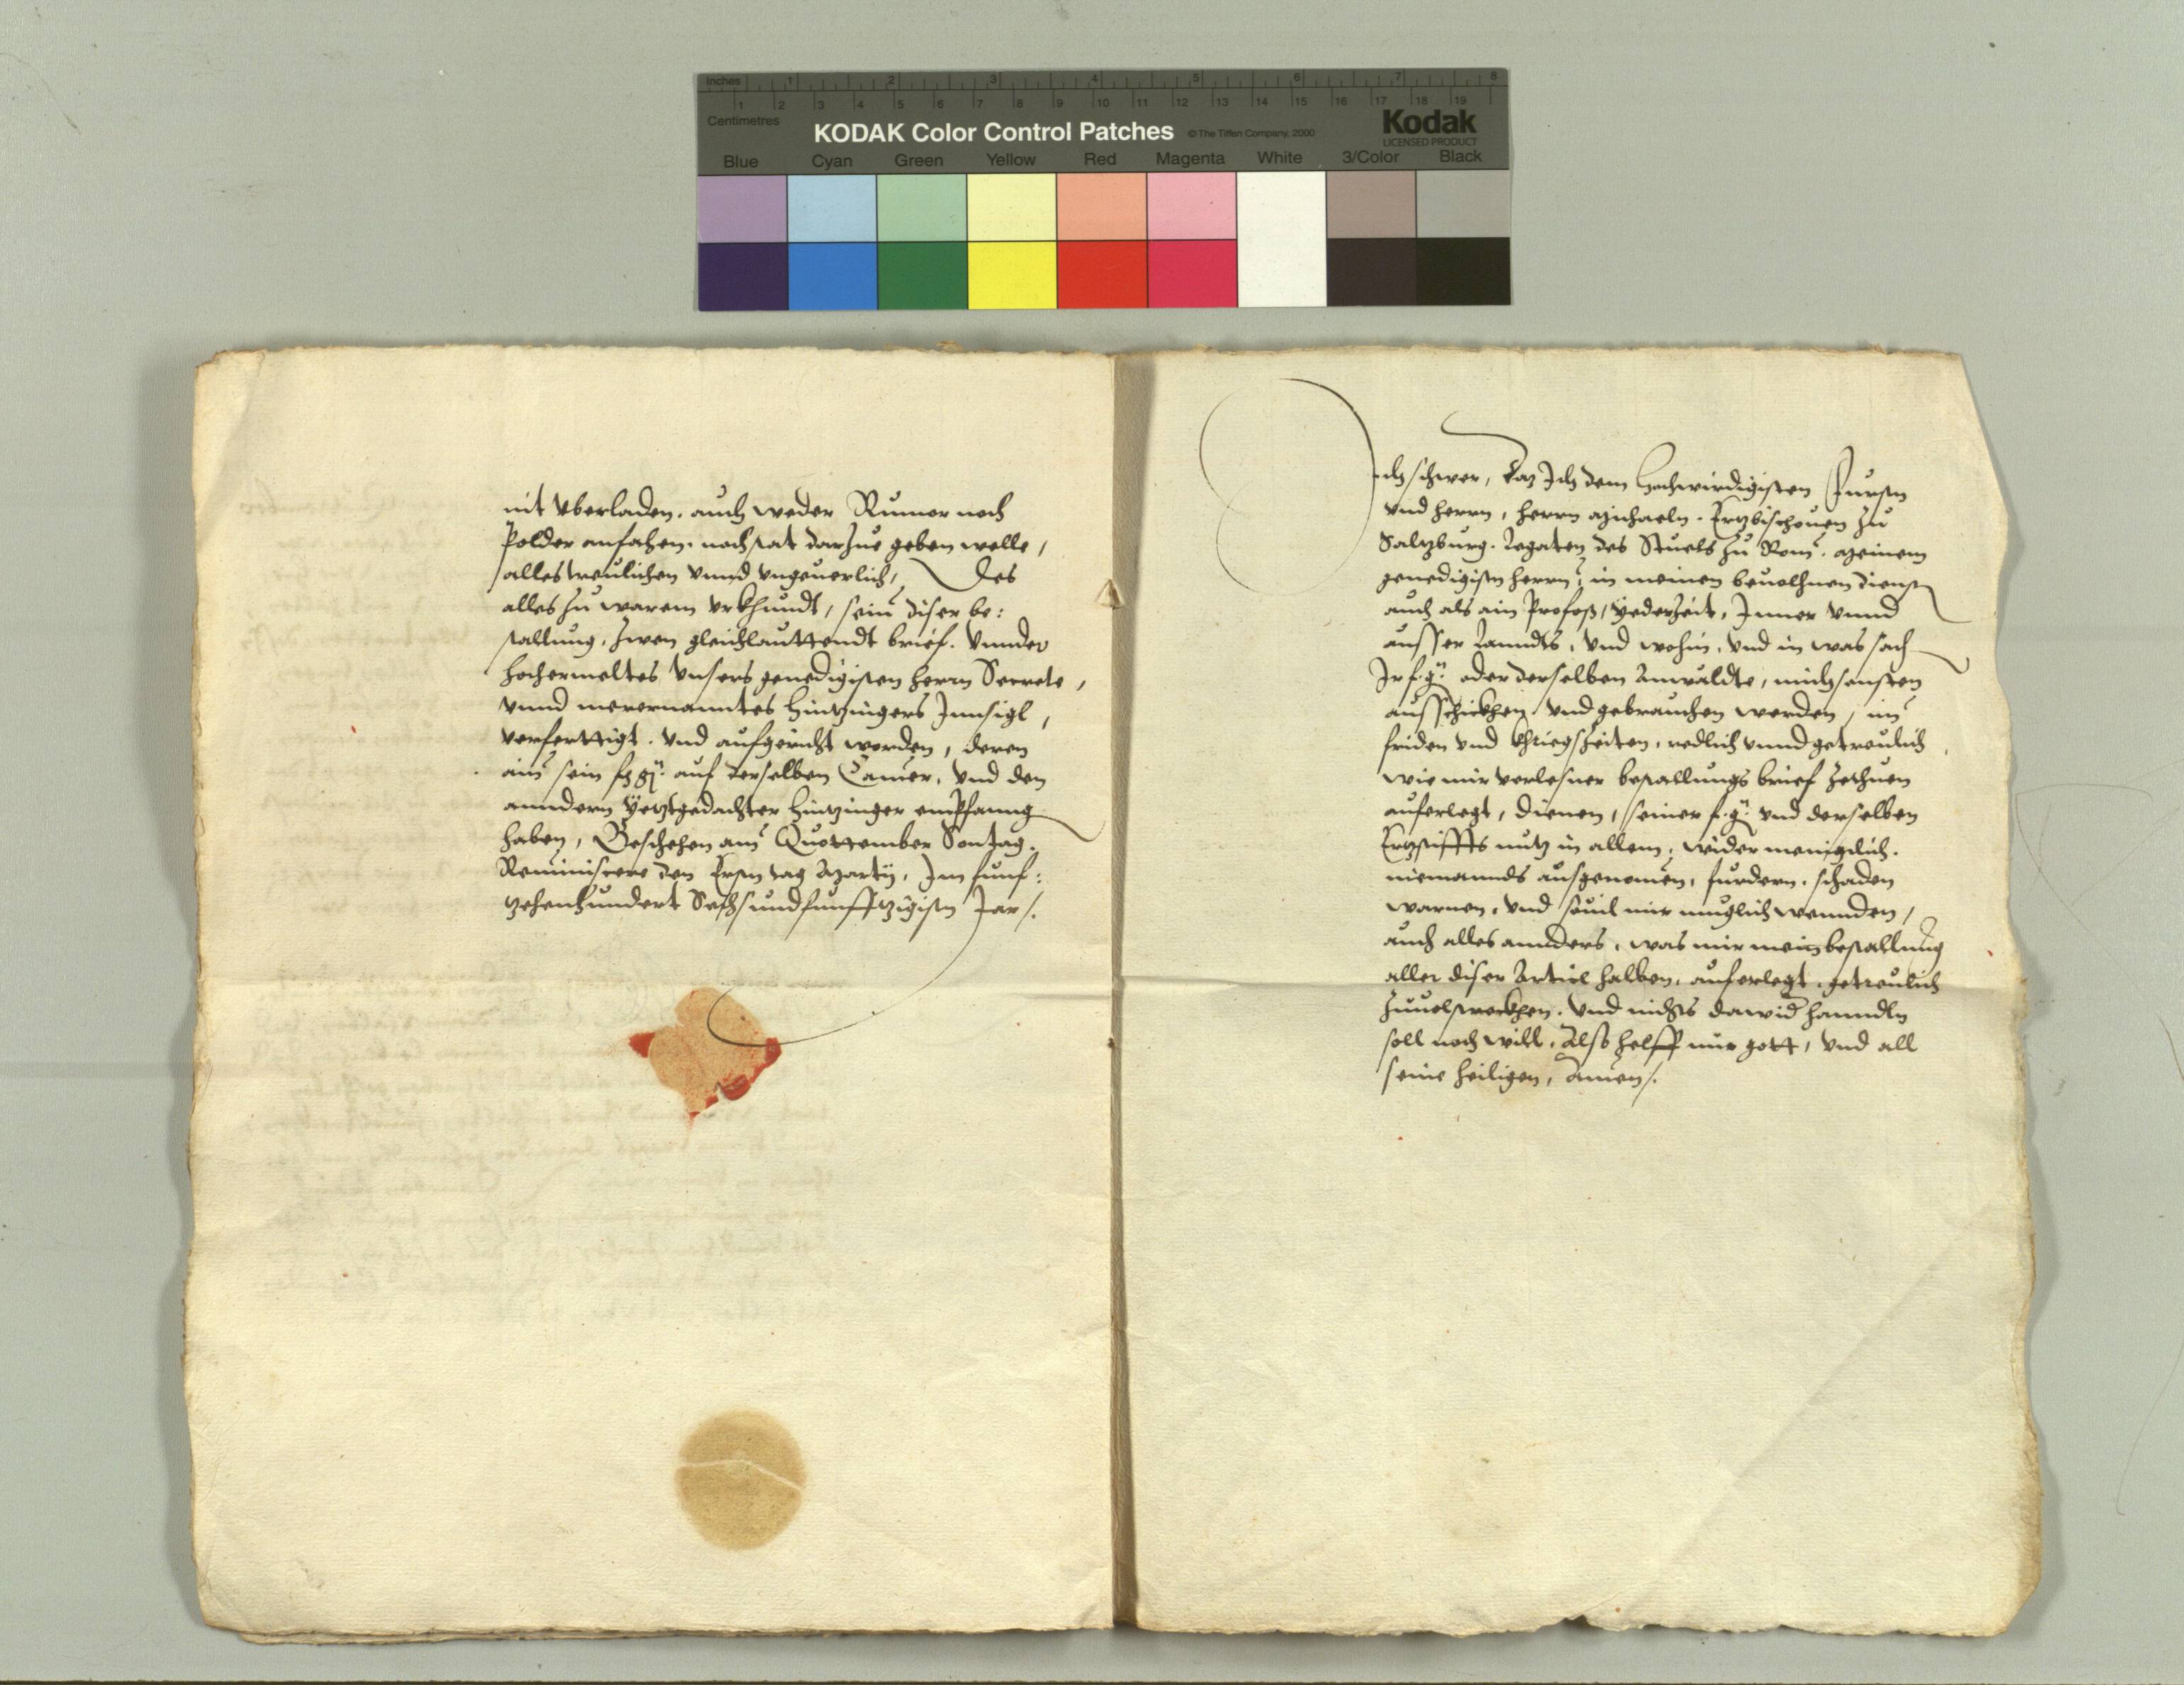 Inches 1 2 3 4 5 6 7 8
1 2 3 4 5 6 7 8 9 10 11 12 13 14 15 16 17 18 19
Centimetres
KODAK Color Control Patches © The Tiffen Company, 2000 Kodak
LICENSED PRODUCT
Blue Cyan Green Yellow Red Magenta White 3/Color Black
nit vberladen. auch weder Rumor noch
Polder anfahen. noch rat darzue geben welle,
alles treulichen vnnd vngeuerlich, Des
alles zu warem vrkhundt, sein diser be:
stallung, zwen gleichlauttendt brief. vnnder
hochermeltes vnsers genedigisten herrn Secrete,
vnnd merernanntes Hintzingers Innsigl,
verferttigt. vnd aufgericht worden, deren
ain sein f. g. auf derselben Camer, vnd den
anndern yetztgedachter Hintzinger emphanng
haben, Beschehen am Quottember Sontag.
Reminiscere den Ersten tag Martij, Im funf:
tzehenhundert Sechsundfunfftzigisten Jar /.
Ich schwer, daz Ich dem Hochwirdigisten Fursten
vnd herrn, herrn Michaeln. Ertzbischouen zu
Saltzburg. Legaten des Stuels zu Rom. Meinem
genedigisten herrn, in meinen beuolhnen diensten
auch als ain Profoß, yederzeit, Inner vnnd
ausser Lanndts, vnd wohin, vnd in was sach
Ir f. g. oder derselben Anwäldte, mich sonsten
ausschickhen vnd gebrauchen werden, in
friden vnd khriegszeiten, redlich vnnd getreulich,
wie mir verlesner bestallungs brief zethuen
auferlegt, dienen, seiner f. g. vnd derselben
Ertzstiffts nutz in allem, wider menigclich.
niemannds ausgenomen, furdern. schaden
warnen, vnd souil mir muglich wennden,
auch alles annders, was mir mein bestallung
aller diser Articl halben, auferlegt. getreulich
zuuolstreckhen. vnd nichts dawider hanndln
soll noch will. Also helff mir gott, vnd all
seine heiligen, Amen /.